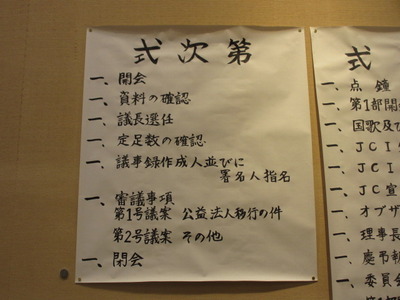 式次第
一、開会
一、資料の確認
一、議長選任
一、定足数の確認
一、議事録作成人並びに
署名人指名
一、審議事項
第1号議案 公益法人移行の件
第2号議案 その他
一、閉会
式
一、点鐘
一、第1部開
一、国歌及び
一、JCI
一、JCI
一、JC宣
一、オブザ
一、理事長
一、慶弔報
一、委員会